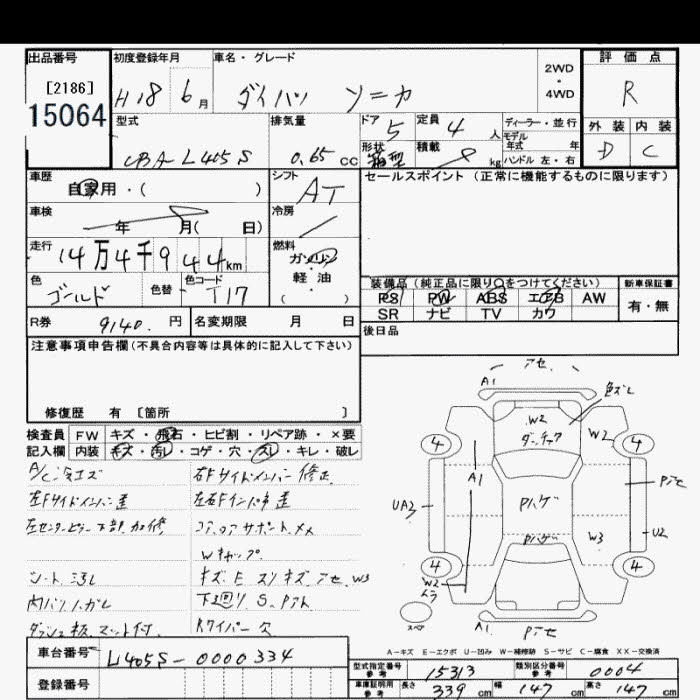 出品番号 初度登録年月 車名・グレード 2WD・4WD 評価点
[2186]
15064
H18 6月 ダイハツ ソニカ R
型式 排気量 ドア 5 定員 4人 ディーラー・並行 外装 内装
CBA-L405S 0.65cc 形状 箱型 積載 kg モデル年式 年 ハンドル 左・右 D C
車歴 シフト セールスポイント(正常に機能するものに限ります)
自家用・( ) AT
車検 冷房
年 月( 日)
走行 燃料
14万4千944km ガソリン・軽油
色 色替 色コード ( ) 装備品(純正品に限り○をつけてください) 新車保証書
ゴールド T17 PS PW ABS エアB AW 有・無
SR ナビ TV カワ
R券 9140.円 名変期限 月 日 後日品
注意事項申告欄(不具合内容等は具体的に記入して下さい)
修復歴 有 〔箇所 〕
検査員記入欄 FW キズ・飛石・ヒビ割・リペア跡・×要
内装 キズ・汚し・コゲ・穴・スレ・キレ・破レ
右Fサイドメンバー修正
左Fサイドメンバー歪 左右Fインパネ歪
左センターピラー下部加修 コアロアサポートメメ
Wキャップ
シート汚レ
内バリハガレ 下廻りS.
Rワイパー欠
アセ
A1 色ズレ
W2 W2
4 4
A1
UA2 Pハゲ U2
Pハゲ W3
4 4
W2
A1
A-キズ E-エクボ U-凹み W-補修跡 S-サビ C-腐食 XX-交換済
車台番号 L405S-0000334
登録番号
型式指定番号 参考 15313 類別区分番号 参考 0004
車庫証明用 参考 長さ 339cm 幅 147cm 高さ 147cm